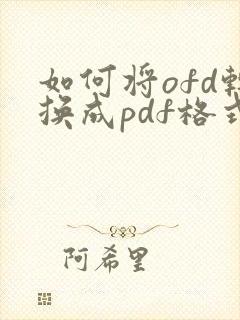 如何将ofd转
换成pdf格式
阿希里